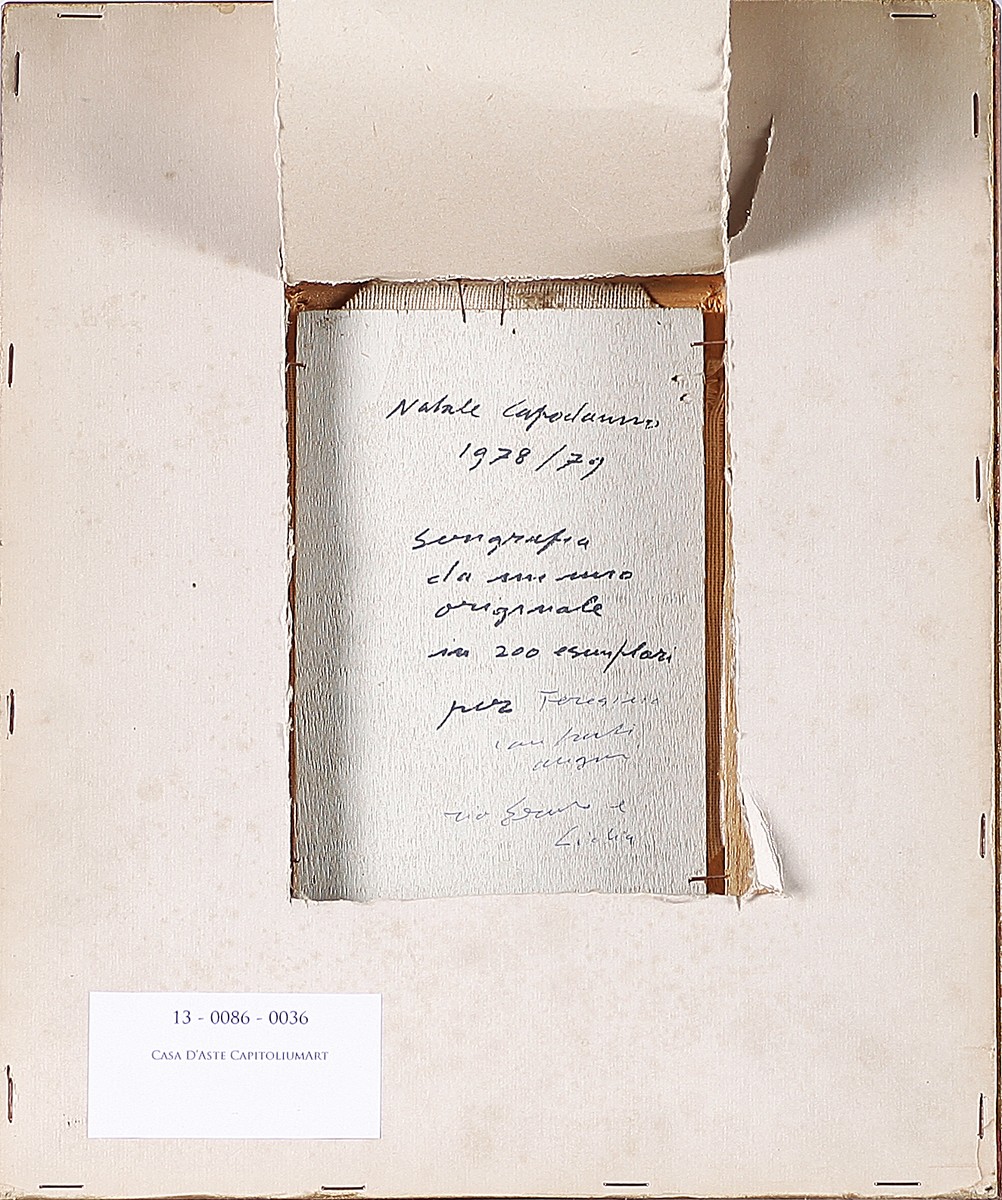 Natale Capodanno
1978/79
Serigrafia
da un mio
originale
in 200 esemplari
per
auguri
zio e
13 - 0086 - 0036
CASA D'ASTE CAPITOLIUMART